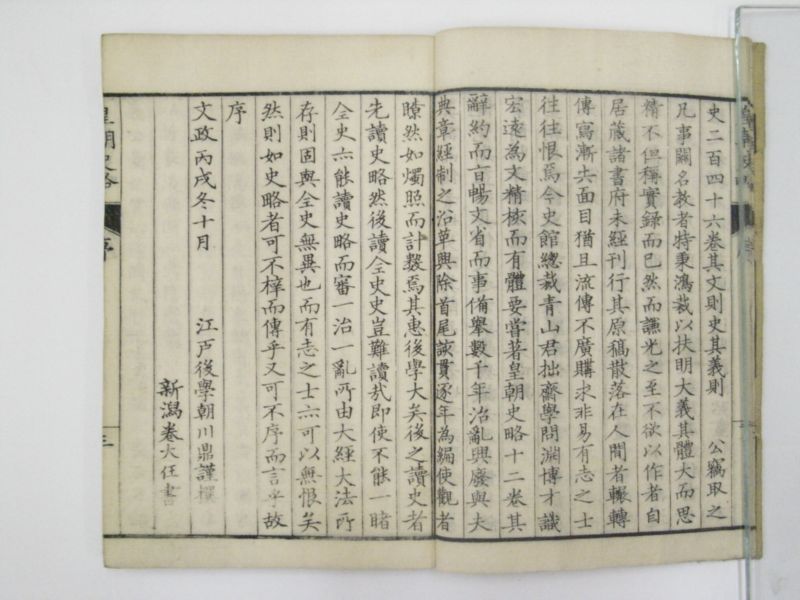 史二百四十六卷其文則史其義則　公竊取之
凡事關名教者特秉鴻裁以扶明大義其體大而思
精不但稱實錄而已然而謙光之至不欲以作者自
居蔵諸書府未經刊行其原稿散落在人間者輾轉
傳寫漸失面目猶且流傳不廣購求非易有志之士
往往恨焉今史館總裁青山君拙齋學問淵博才識
宏遠為文精核而有體要嘗著皇朝史略十二卷其
辭約而旨暢文省而事備舉數千年治亂興廢與夫
典章經制之沿革興除首尾該貫逐年為編使觀者
瞭然如燭照而計數焉其惠後學大矣後之讀史者
先讀史略然後讀全史史豈難讀哉即使不能一睹
全史亦能讀史略而審一治一亂所由大經大法所
存則固與全史無異也而有志之士亦可以無恨矣
然則如史略者可不梓而傳乎又可不序而言乎故
序
文政丙戌冬十月　江戸後學朝川鼎謹撰
新潟卷大任書
皇朝史略
序
三